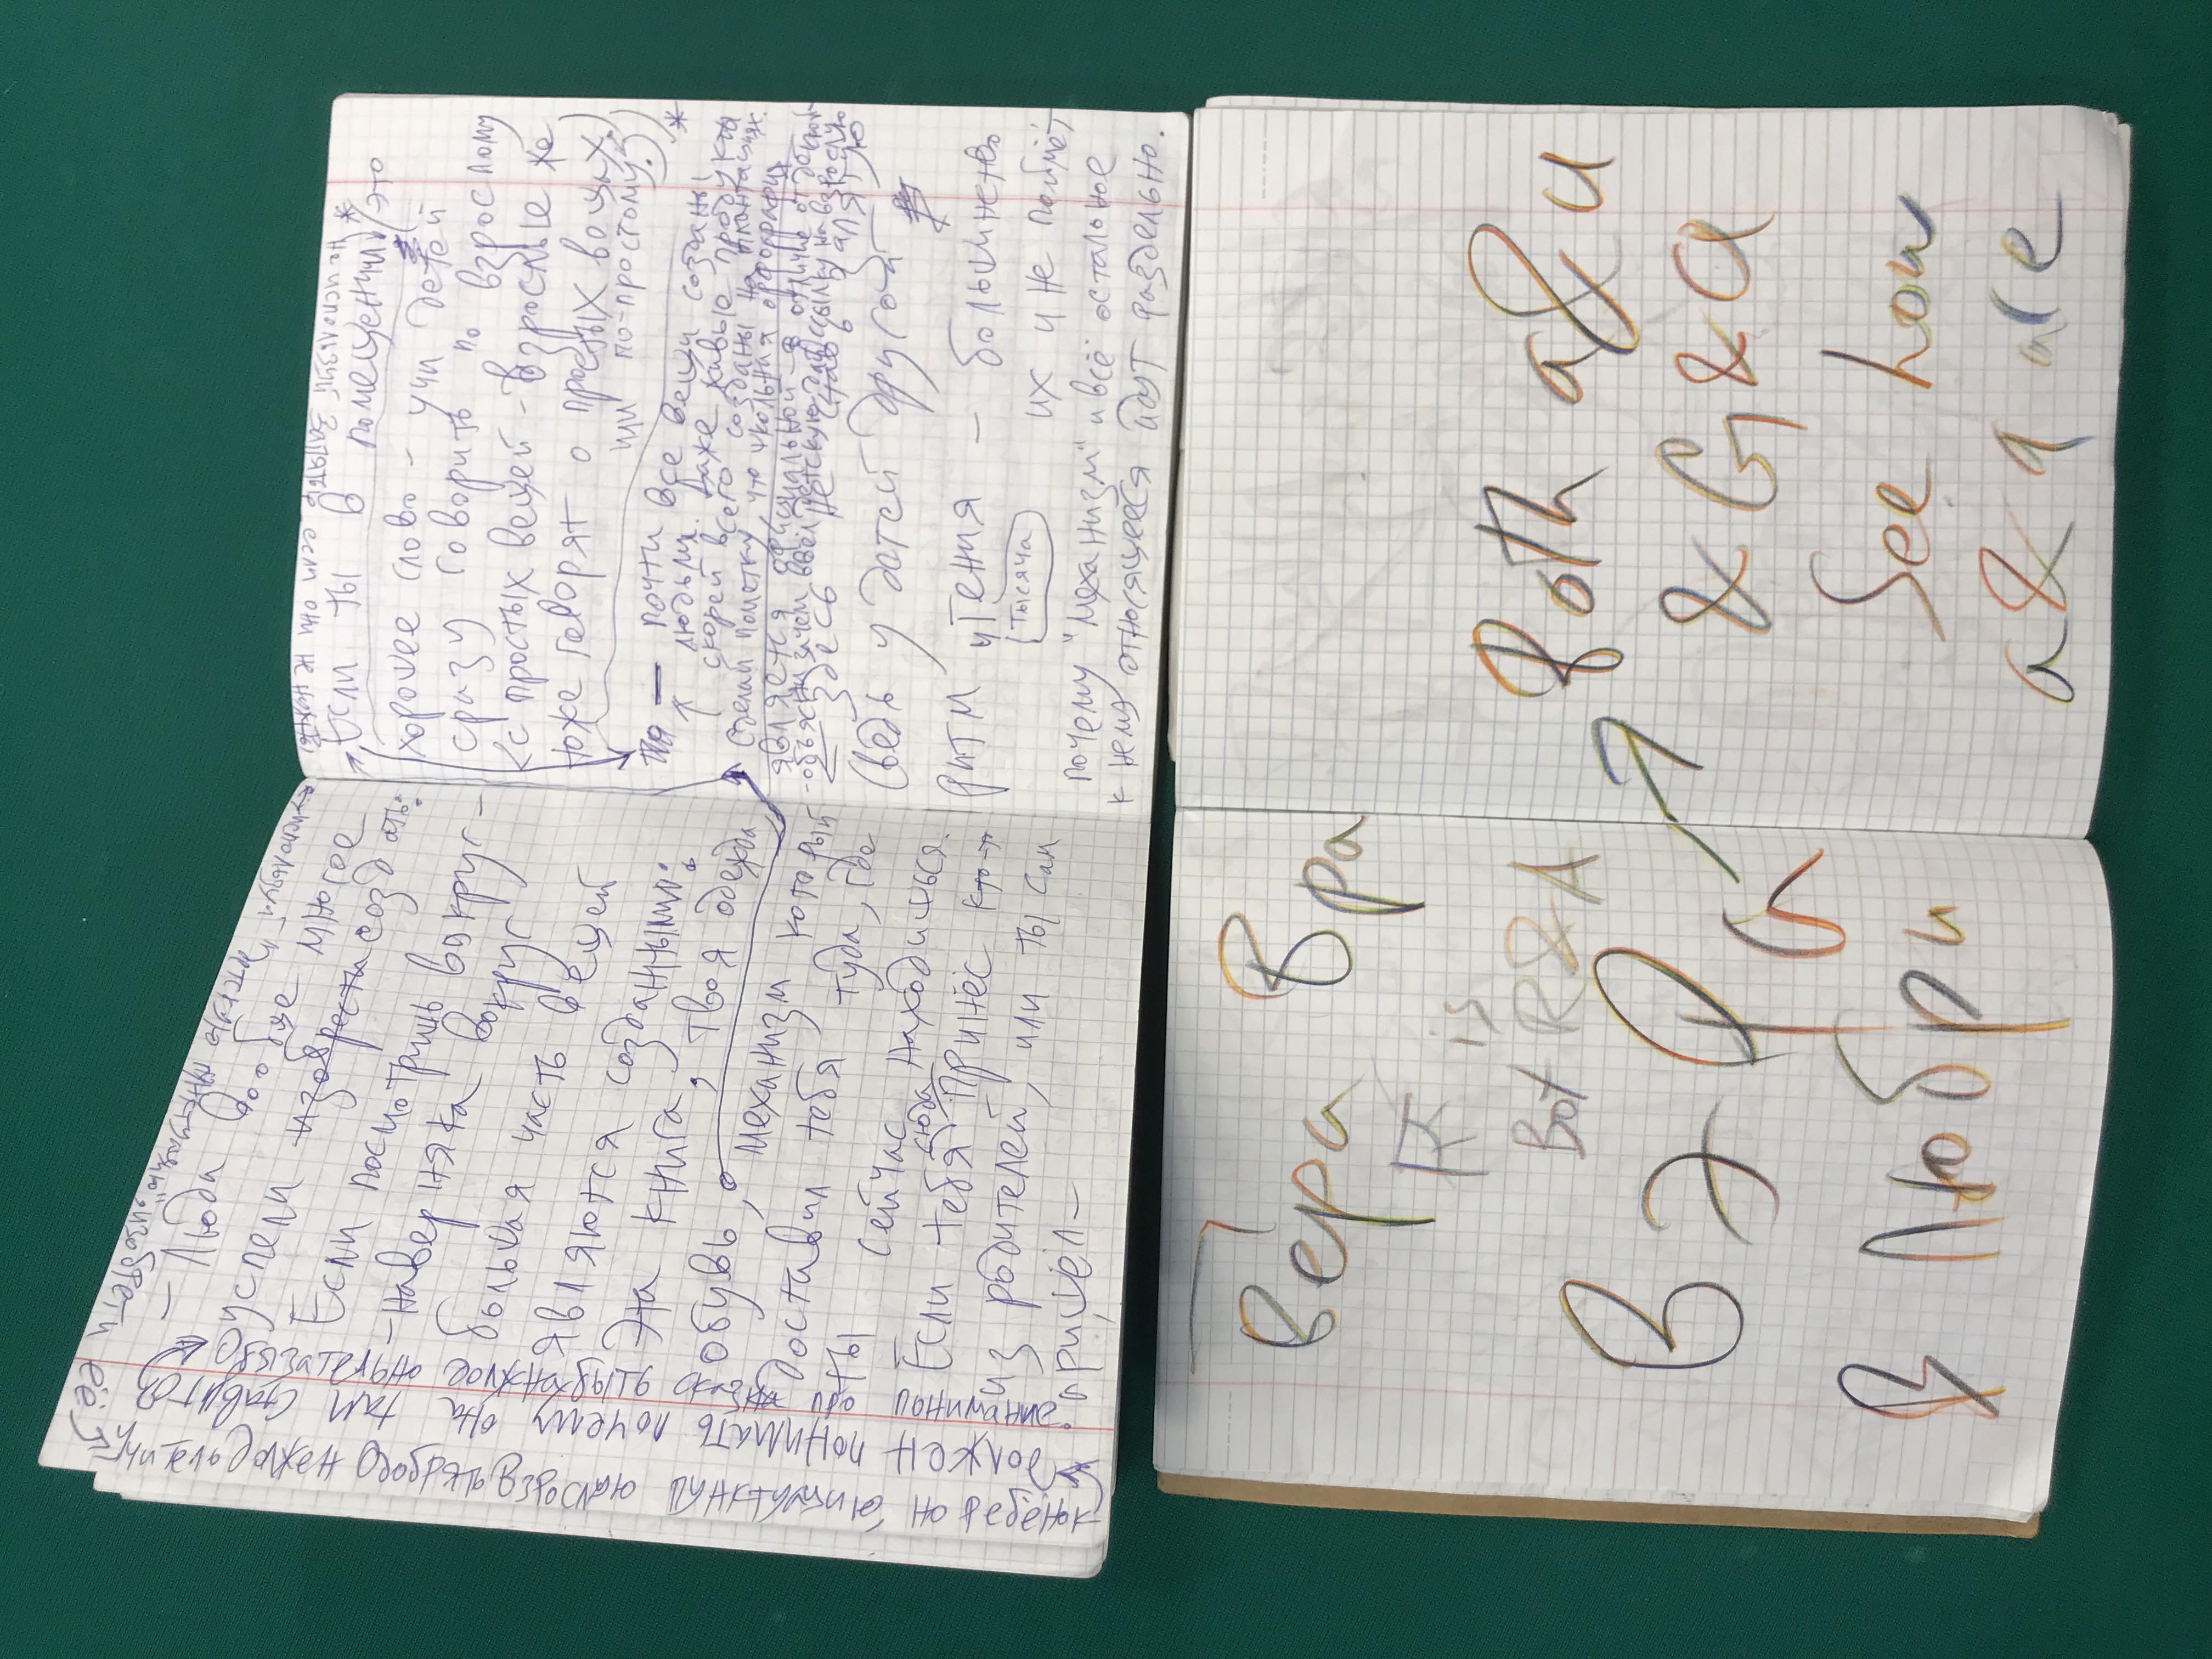 используй "детскую пунктуацию", изобрети
её
- Люди вообще многое
успели изобрести создать:
Если посмотришь вокруг -
- Наверняка вокруг
большая часть вещей
являются созданными:
Эта книга, твоя одежда,
обувь, механизм который
доставил тебя туда, где
ты сейчас находишься.
Если тебя сюда принёс кто-то
из родителей, или ты сам
пришёл -
Обязательно должна быть про понимание.
что иной
Учитель должен взрослую пунктуацию, но ребёнк
Не используй запятые если они не нужны
Если ты в помещении * (это
хорошее слово - учи детей
сразу говорить по взрослому
<с простых вещей - взрослые же
тоже говорят о простых вещах.)
или по-простому.)
то — почти все вещи созданы *
людьми. Даже живые продукты
скорей всего созданы на плантациях.
Сделай пометку, что школьная орфография
является официальной - в отличие от детской
- объясни зачем ввёл детскую, дай ссылку на взрослую
здесь не ставь запятую
(ведь у детей другой
ритм чтения - большинство
тысяча
их и не поймёт
почему "механизм" и всё остальное
к нему относящееся идут раздельно.
Вера Вра
is
Bot R&A
В Э Ра
В Любри
Both a&u
& G & a
See how
a & q are